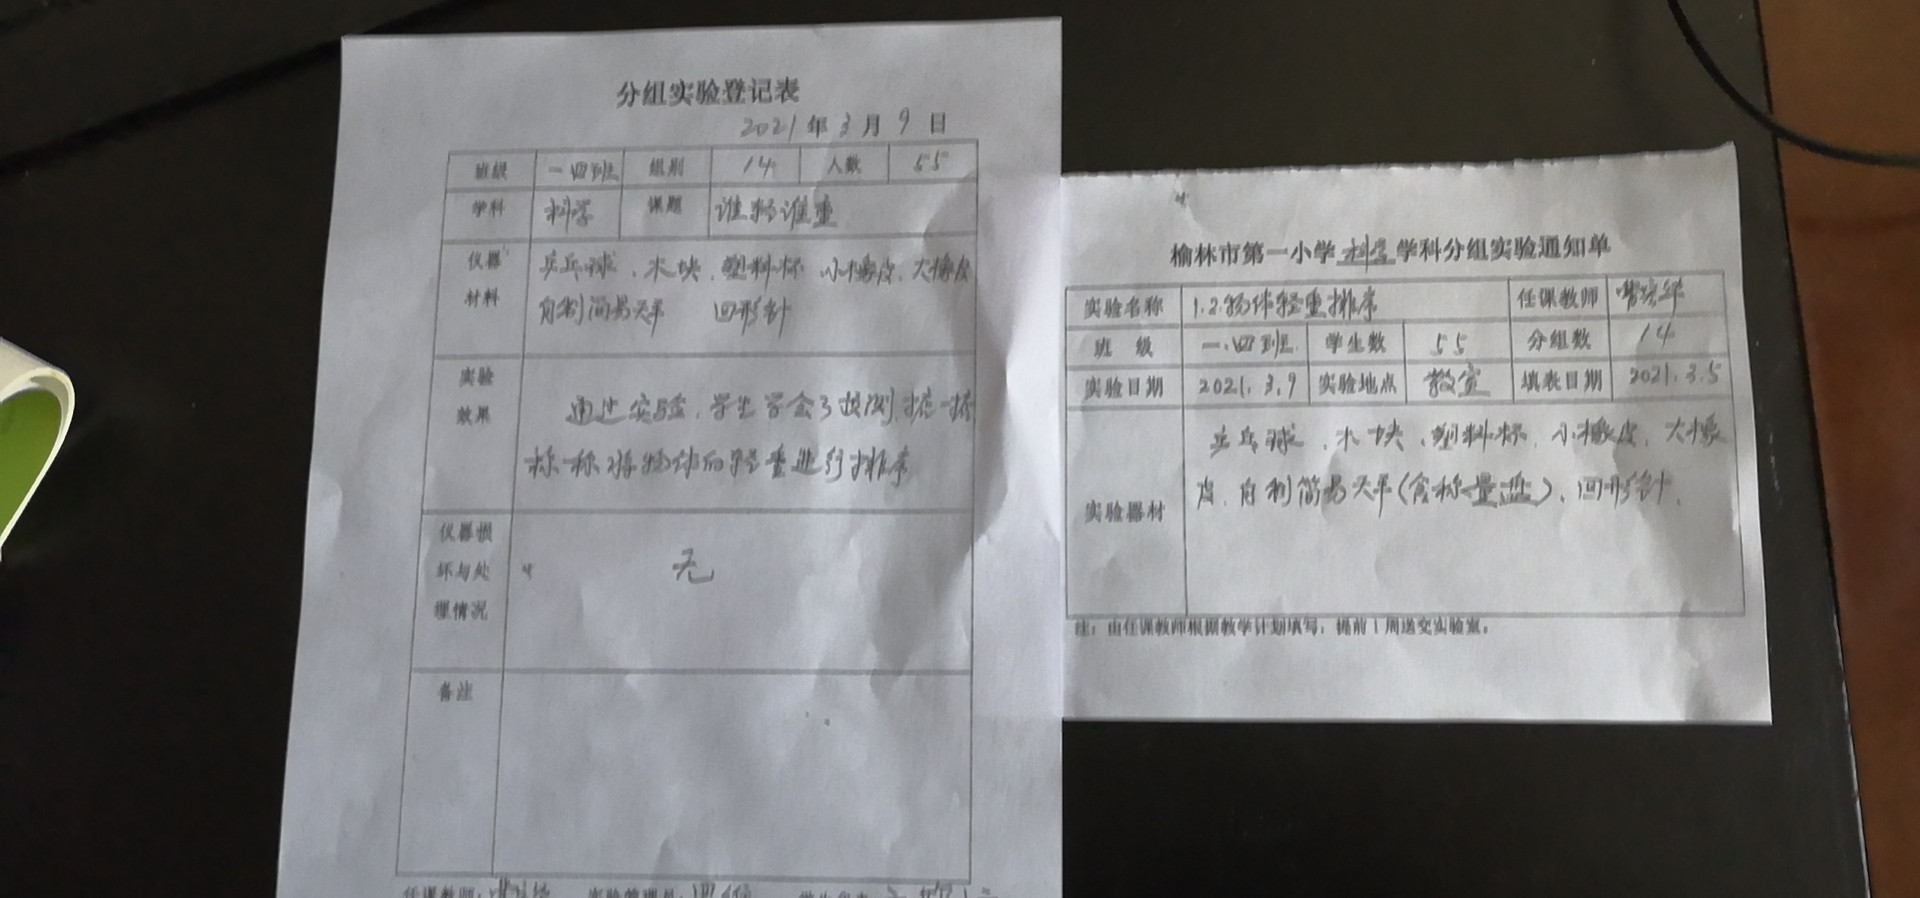 分组实验登记表
2021年3月9日
班级 一四班 组别 14 人数 55
学科 科学 课题 谁轻谁重
仪器材料 乒乓球、木块、塑料杯 小橡皮、大橡皮
自制简易天平 回形针
实验效果 通过实验,学生学会了预测、掂一掂
称一称将物体的轻重进行排序
仪器损坏与处理情况 无
备注
任课教师:
榆林市第一小学科学学科分组实验通知单
实验名称 1.2.物体轻重排序 任课教师
班级 一.四班 学生数 55 分组数 14
实验日期 2021.3.9 实验地点 教室 填表日期 2021.3.5
实验器材 乒乓球、木块、塑料杯、小橡皮、大橡
皮、自制简易天平(含称量纸)、回形针、
注:由任课教师根据教学计划填写,提前1周送交实验室。